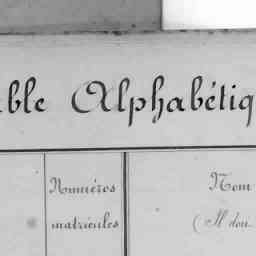 ble Alphabétiq
Numéros
matricules
Nom
(Il dou